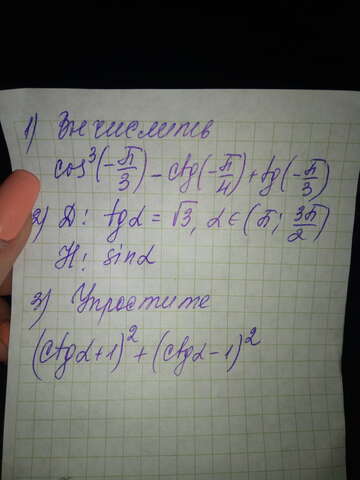 1) Вычислить
cos³(-π/3) - ctg(-π/4) + tg(-π/3)
2) Д: tgα = √3, α ∈ (π; 3π/2)
Н: sinα
3) Упростите
(ctgα+1)² + (ctgα-1)²